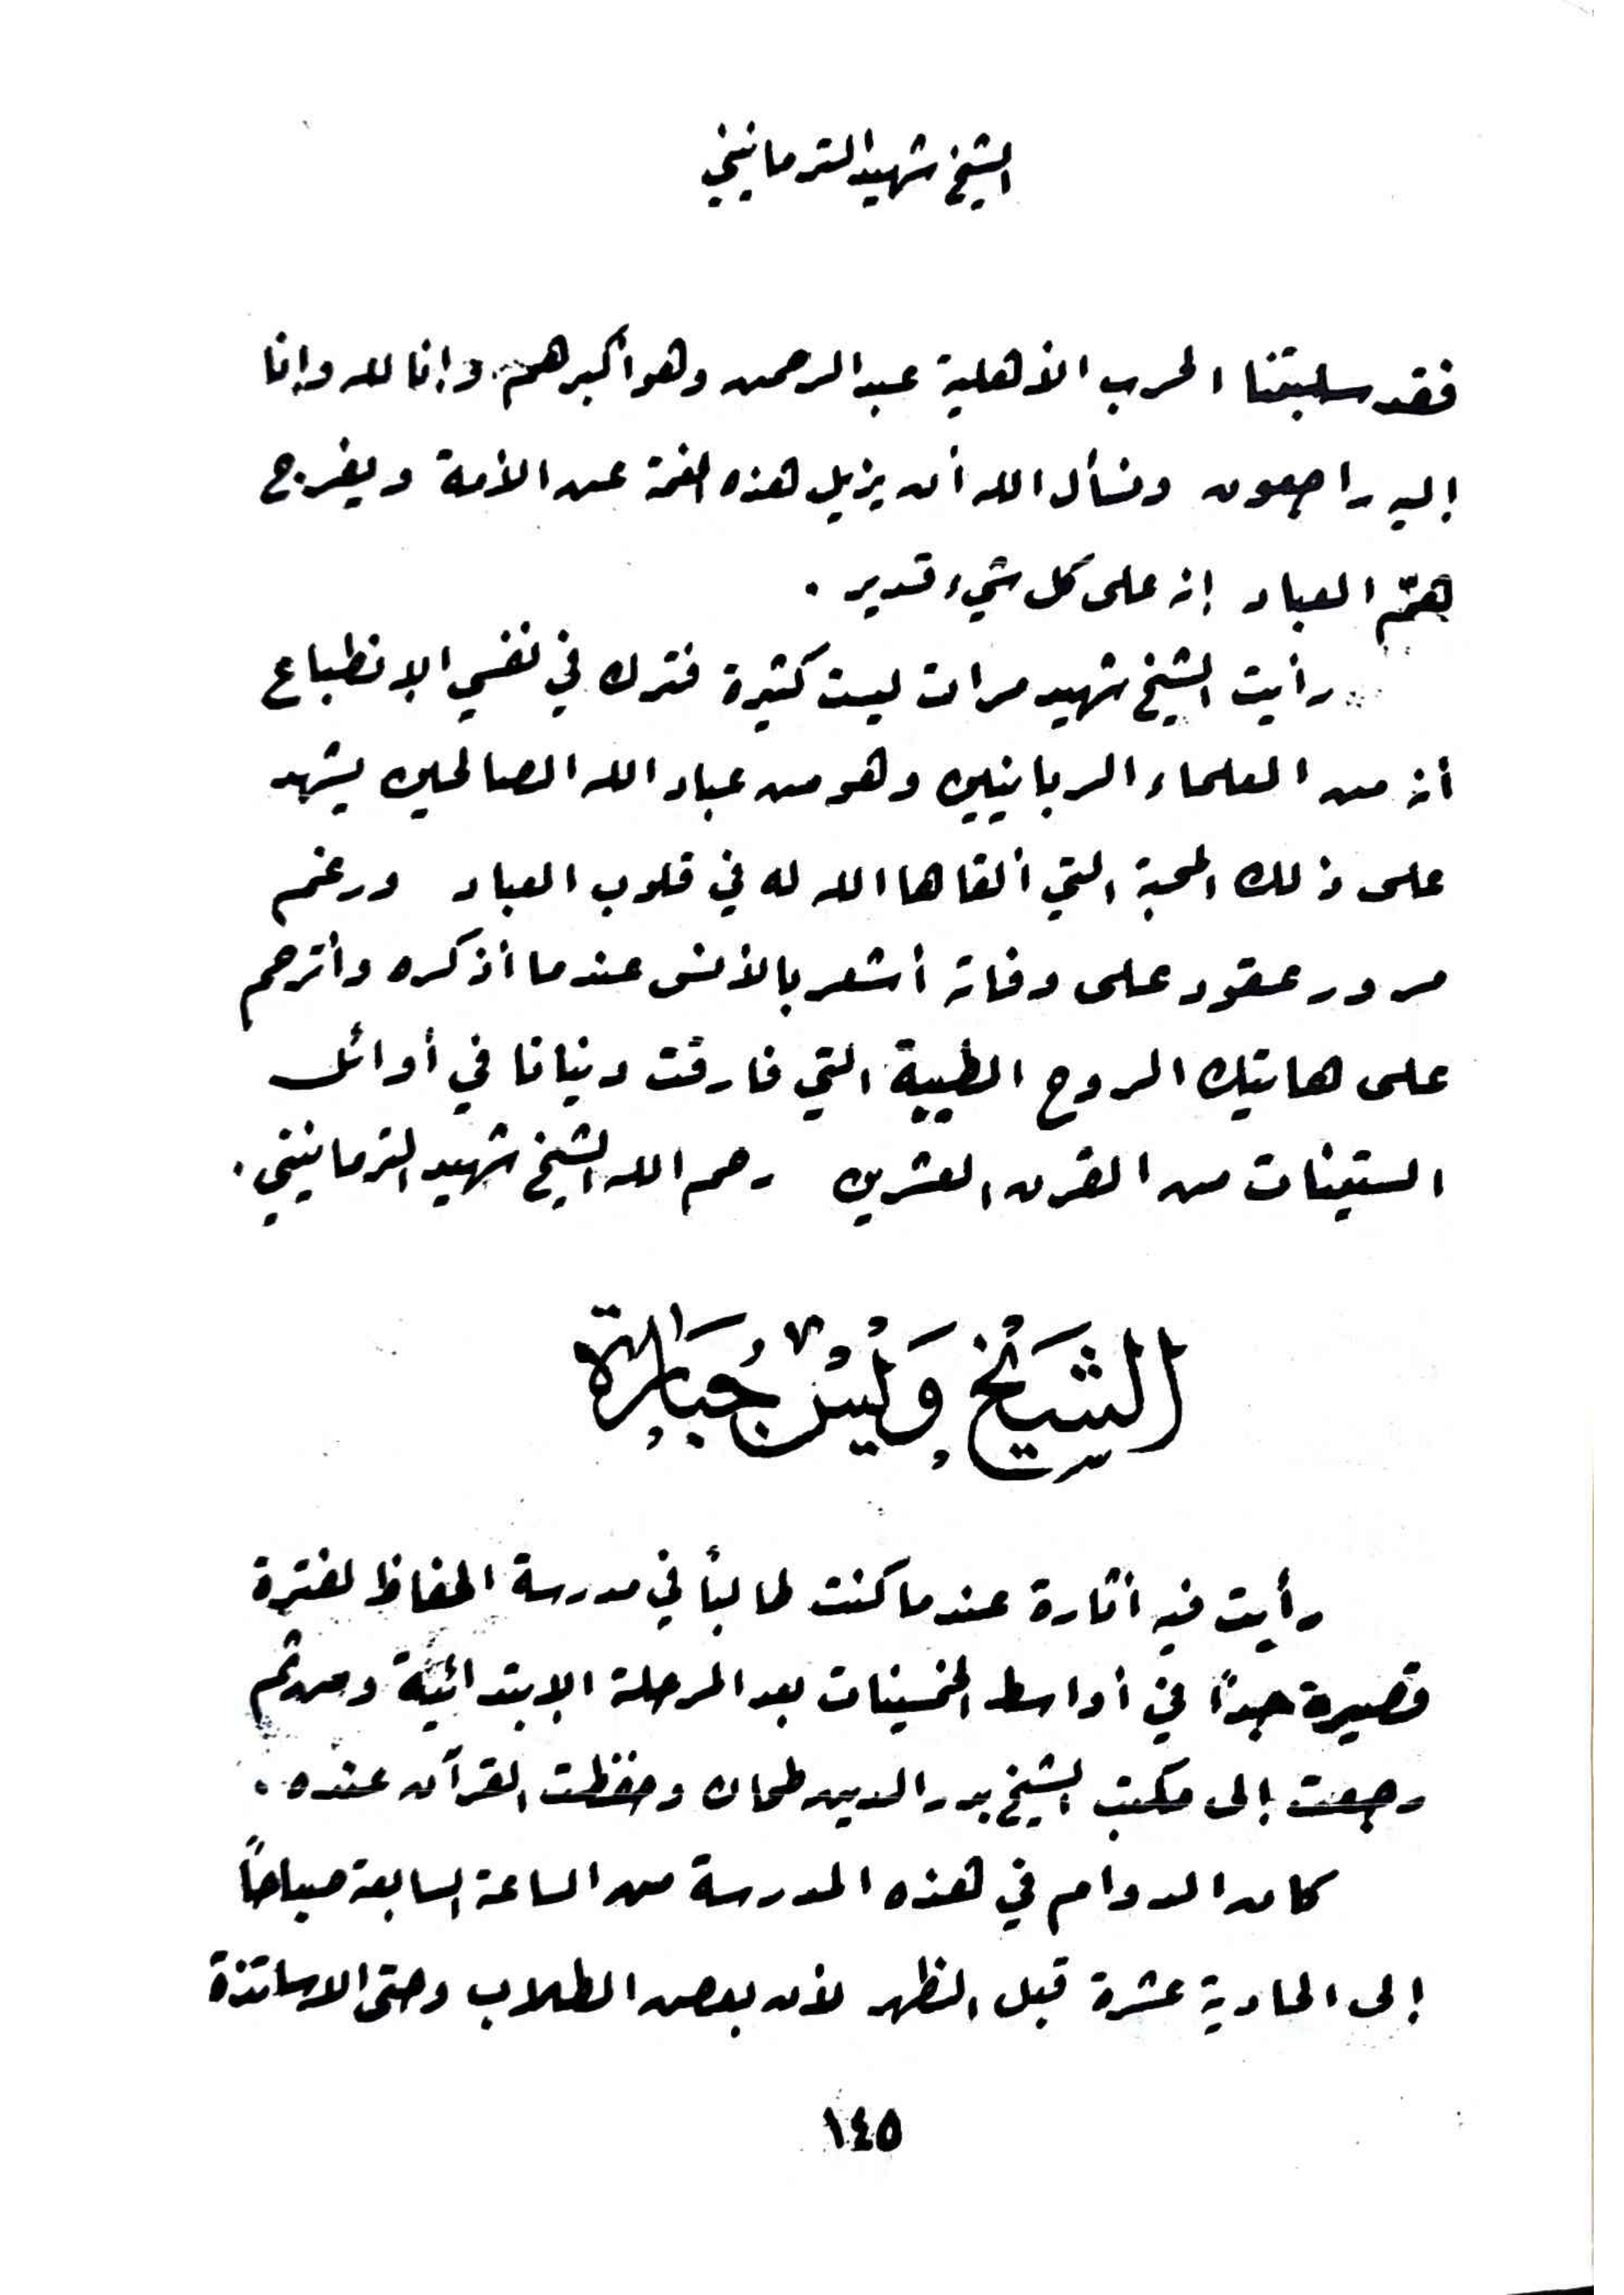 الشيخ شهيد الترمانيني
فقد سلبتنا الحرب الأهلية عبد الرحمن وهو أكبرهم. وإنا لله وإنا
إليه راجعون ونسأل الله أن يزيل هذه الغمة عن الأمة ويفرج
همّ العباد إنه على كل شيء قدير .
رأيت الشيخ شهيد مرات ليست كثيرة فترك في نفسي الإنطباع
أنه من العلماء الربانيين وهو من عباد الله الصالحين يشهد
على ذلك المحبة التي ألقاها الله له في قلوب العباد ورغم
مرور عقود على وفاته أشعر بالأنس عندما أذكره وأترحم
على هاتيك الروح الطيبة التي فارقت دنيانا في أوائل
الستينات من القرن العشرين رحم الله الشيخ شهيد الترمانيني .
الشَيْخ وَلَيْسْ جُبَارَة
رأيت فيه أثارة عندما كنت طالباً في مدرسة الحفاظ لفترة
قصيرة جداً في أواسط الخمسينات بعد المرحلة الإبتدائية ومن ثم
رجعت إلى مكتب الشيخ بدر الدين طحان وحفظت القرآن عنده .
كان الدوام في هذه المدرسة من الساعة السابعة صباحاً
إلى الحادية عشرة قبل الظهر لأن بعض الطلاب وحتى الاساتذة
١٤٥